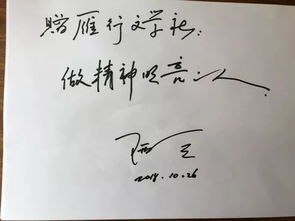 赠雁行文学社:
做精神明亮的人.
2018.10.26